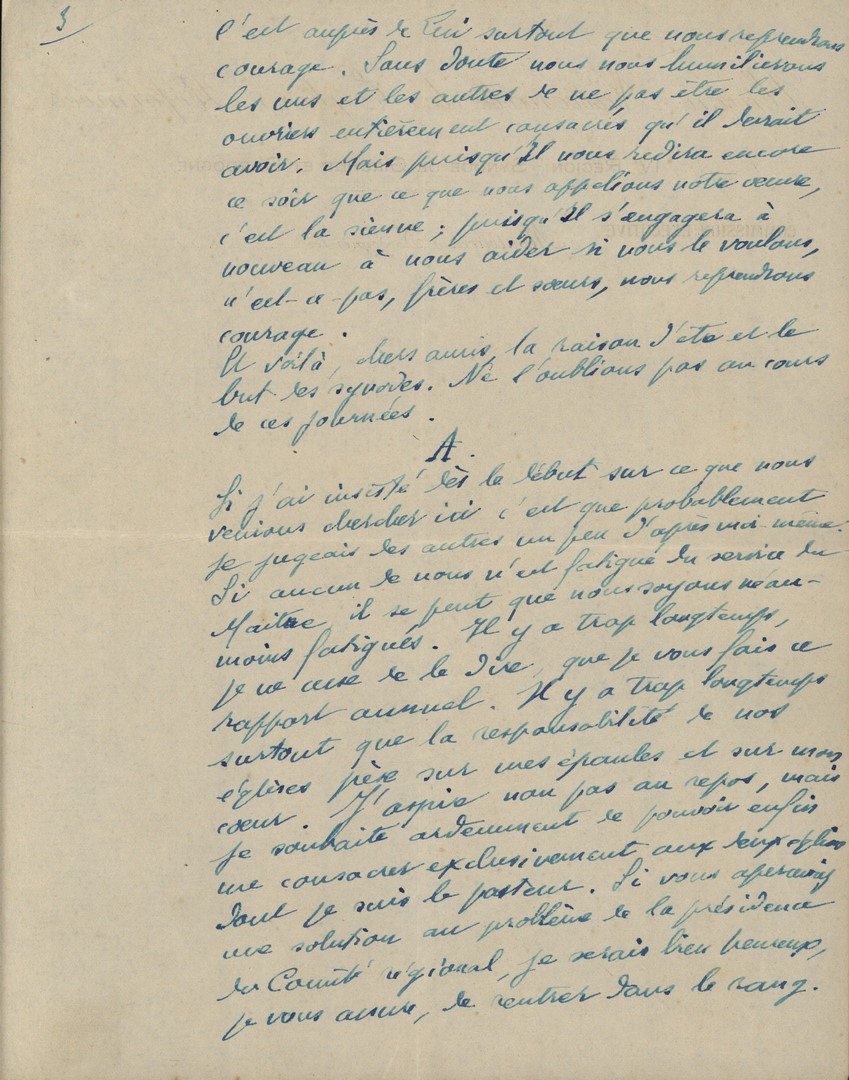 3
c'est auprès de Lui surtout que nous reprendrons
courage. Sans doute nous nous humilierons
les uns et les autres de ne pas être les
ouvriers entièrement consacrés qu'il devrait
avoir. Mais puisqu'Il nous redira encore
ce soir que ce que nous appelions notre oeuvre,
c'est la sienne ; puisqu'Il s'engagera à
nouveau à nous aider si nous le voulons,
n'est-ce-pas, frères et soeurs, nous reprendrons
courage.
Et voilà, chers amis, la raison d'être et le
but des synodes. Ne l'oublions pas au cours
de ces journées.
A.
Si j'ai insisté dès le début sur ce que nous
venions chercher ici c'est que probablement
je jugeais des autres un peu d'après moi-même.
Si aucun de nous n'est fatigué du service du
Maître, il se peut que nous soyons néan-
moins fatigués. Il y a trop longtemps,
je ne cesse de le dire, que je vous fais ce
rapport annuel. Il y a trop longtemps
surtout que la responsabilité de nos
églises pèse sur mes épaules et sur mon
coeur. J'aspire non pas au repos, mais
je souhaite ardemment de pouvoir enfin
me consacrer exclusivement aux deux églises
dont je suis le pasteur. Si vous aperceviez
une solution au problème de la présidence
du Comité régional, je serais bien heureux,
je vous assure, de rentrer dans le rang.